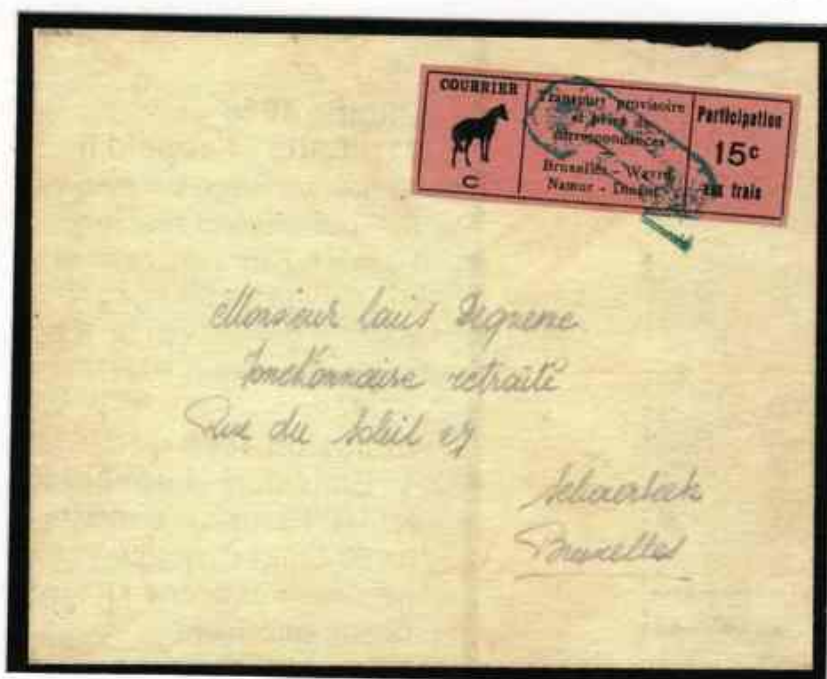 COURRIER
C
Transport provisoire
et privé de
correspondances
Bruxelles - Wavre
Namur - Dinant
Participation
15c
aux frais
Monsieur Louis
fonctionnaire retraité
Rue du Soleil 27
Schaerbeek
Bruxelles